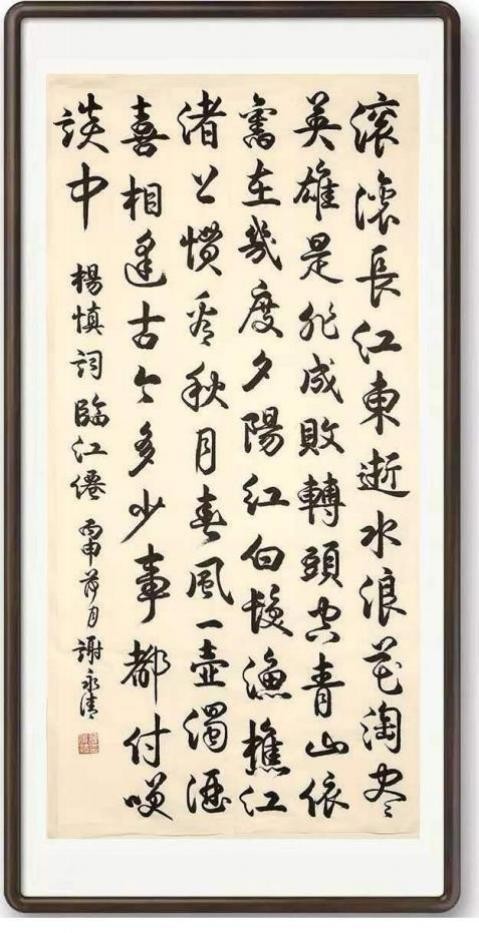 滚滚長江東逝水浪花淘尽
英雄是非成敗轉頭空青山依
舊在幾度夕陽紅白髮漁樵江
渚上慣看秋月春風一壺濁酒
喜相逢古今多少事都付笑
談中 楊慎詞臨江僊 丙申荷月謝永清